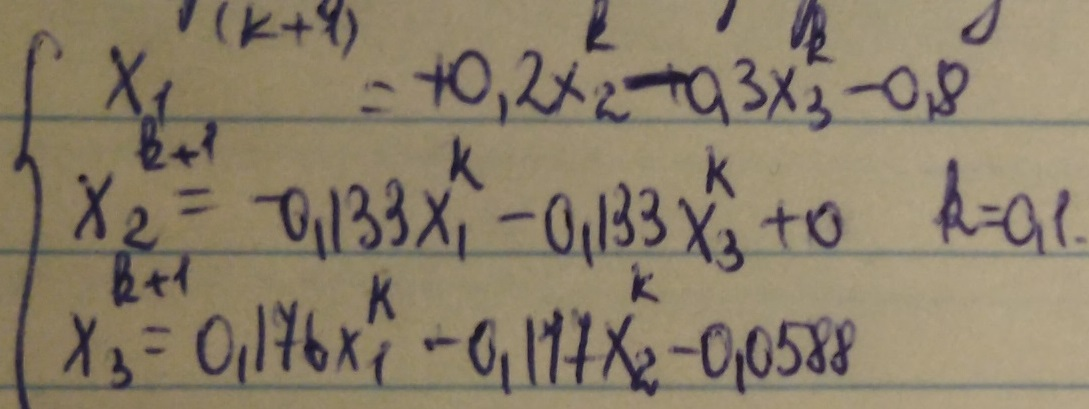 x₁⁽ᵏ⁺¹⁾ = +0,2x₂ᵏ − 0,3x₃ᵏ − 0,8
x₂ᵏ⁺¹ = −0,133x₁ᵏ − 0,133x₃ᵏ + 0 k=0,1.
x₃ᵏ⁺¹ = 0,176x₁ᵏ − 0,117x₂ᵏ − 0,0588